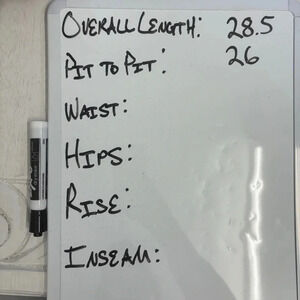 OVERALL LENGTH: 28.5
PIT TO PIT: 26
WAIST:
HIPS:
RISE:
INSEAM: